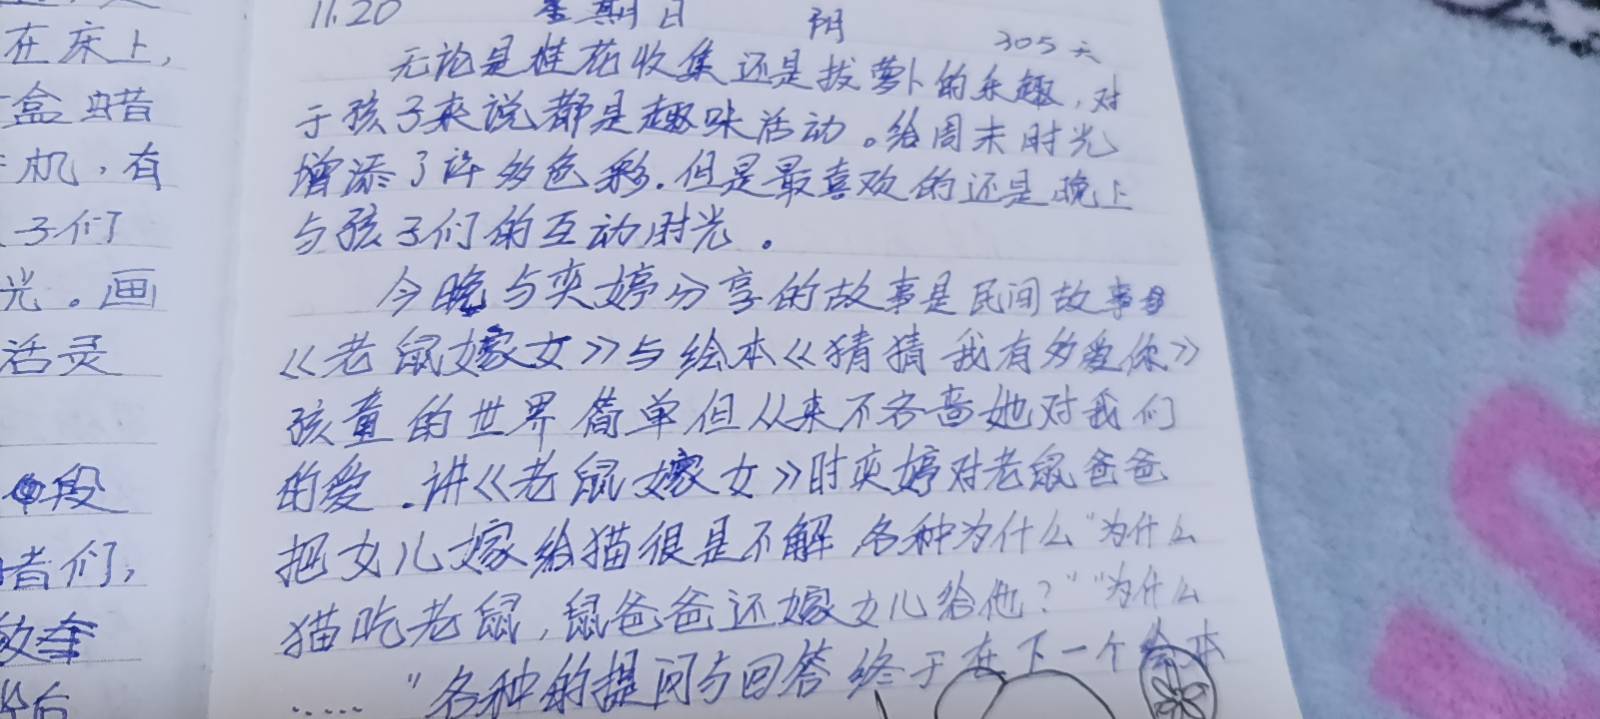 在床上,
盒蜡
机,有
子们
光。画
活灵
段
者们,
11.20 星期日 阴
305天
无论是桂花收集还是拔萝卜的乐趣,对
于孩子来说都是趣味活动。给周末时光
增添了许多色彩.但是最喜欢的还是晚上
与孩子们的互动时光。
今晚与奕婷分享的故事是民间故事
《老鼠嫁女》与绘本《猜猜我有多爱你》
孩童的世界简单但从来不吝啬她对我们
的爱.讲《老鼠嫁女》时奕婷对老鼠爸爸
把女儿嫁给猫很是不解各种为什么"为什么
猫吃老鼠,鼠爸爸还嫁女儿给他?""为什么
……"各种的提问与回答终于在下一个绘本